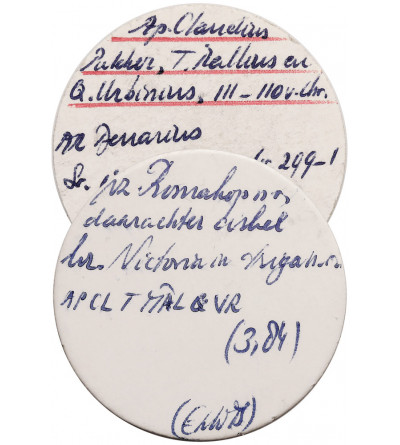 Ap. Claudius
Pulcher, T. Mallius en
Q. Urbinius, 111-110 v. Chr.
AR Denarius
Cr. 299-1
Vz. Romakop n. r.
daarachter cirkel
Kz. Victoria in triga n. r.
AP CL T MAL Q VR
(3,84)